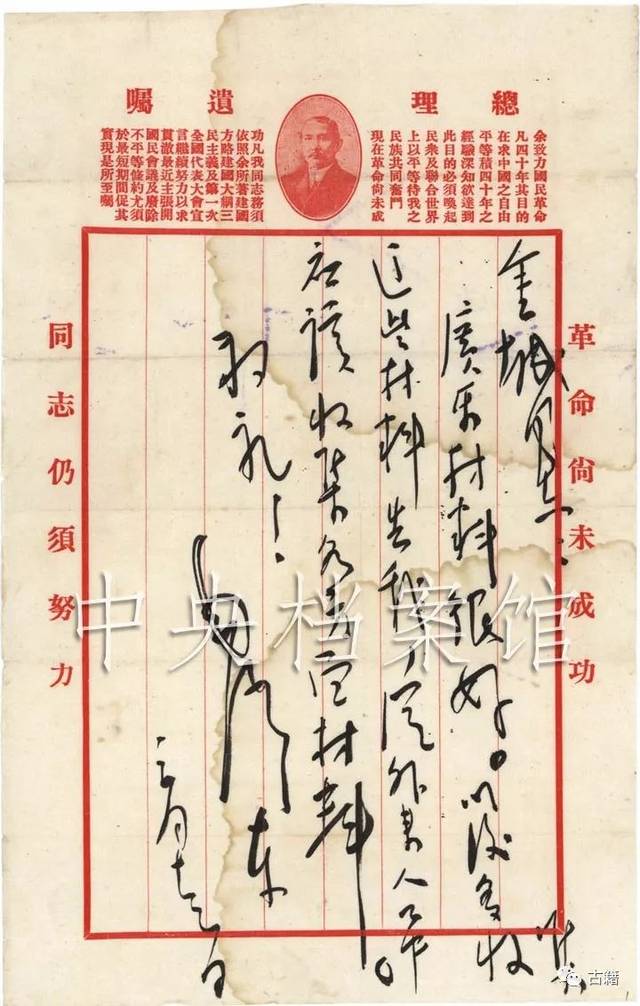 總理遺囑
余致力國民革命
凡四十年其目的
在求中國之自由
平等積四十年之
經驗深知欲達到
此目的必須喚起
民眾及聯合世界
上以平等待我之
民族共同奮鬥
現在革命尚未成
功凡我同志務須
依照余所著建國
方略建國大綱三
民主義及第一次
全國代表大會宣
言繼續努力以求
貫徹最近主張開
國民會議及廢除
不平等條約尤須
於最短期間促其
實現是所至囑
革命尚未成功
金城同志：
材料很好。以後多收集
這些材料告我。
應該收集各方面材料
敬礼！
毛澤東
三月十七日
同志仍須努力
中央档案馆
古籍